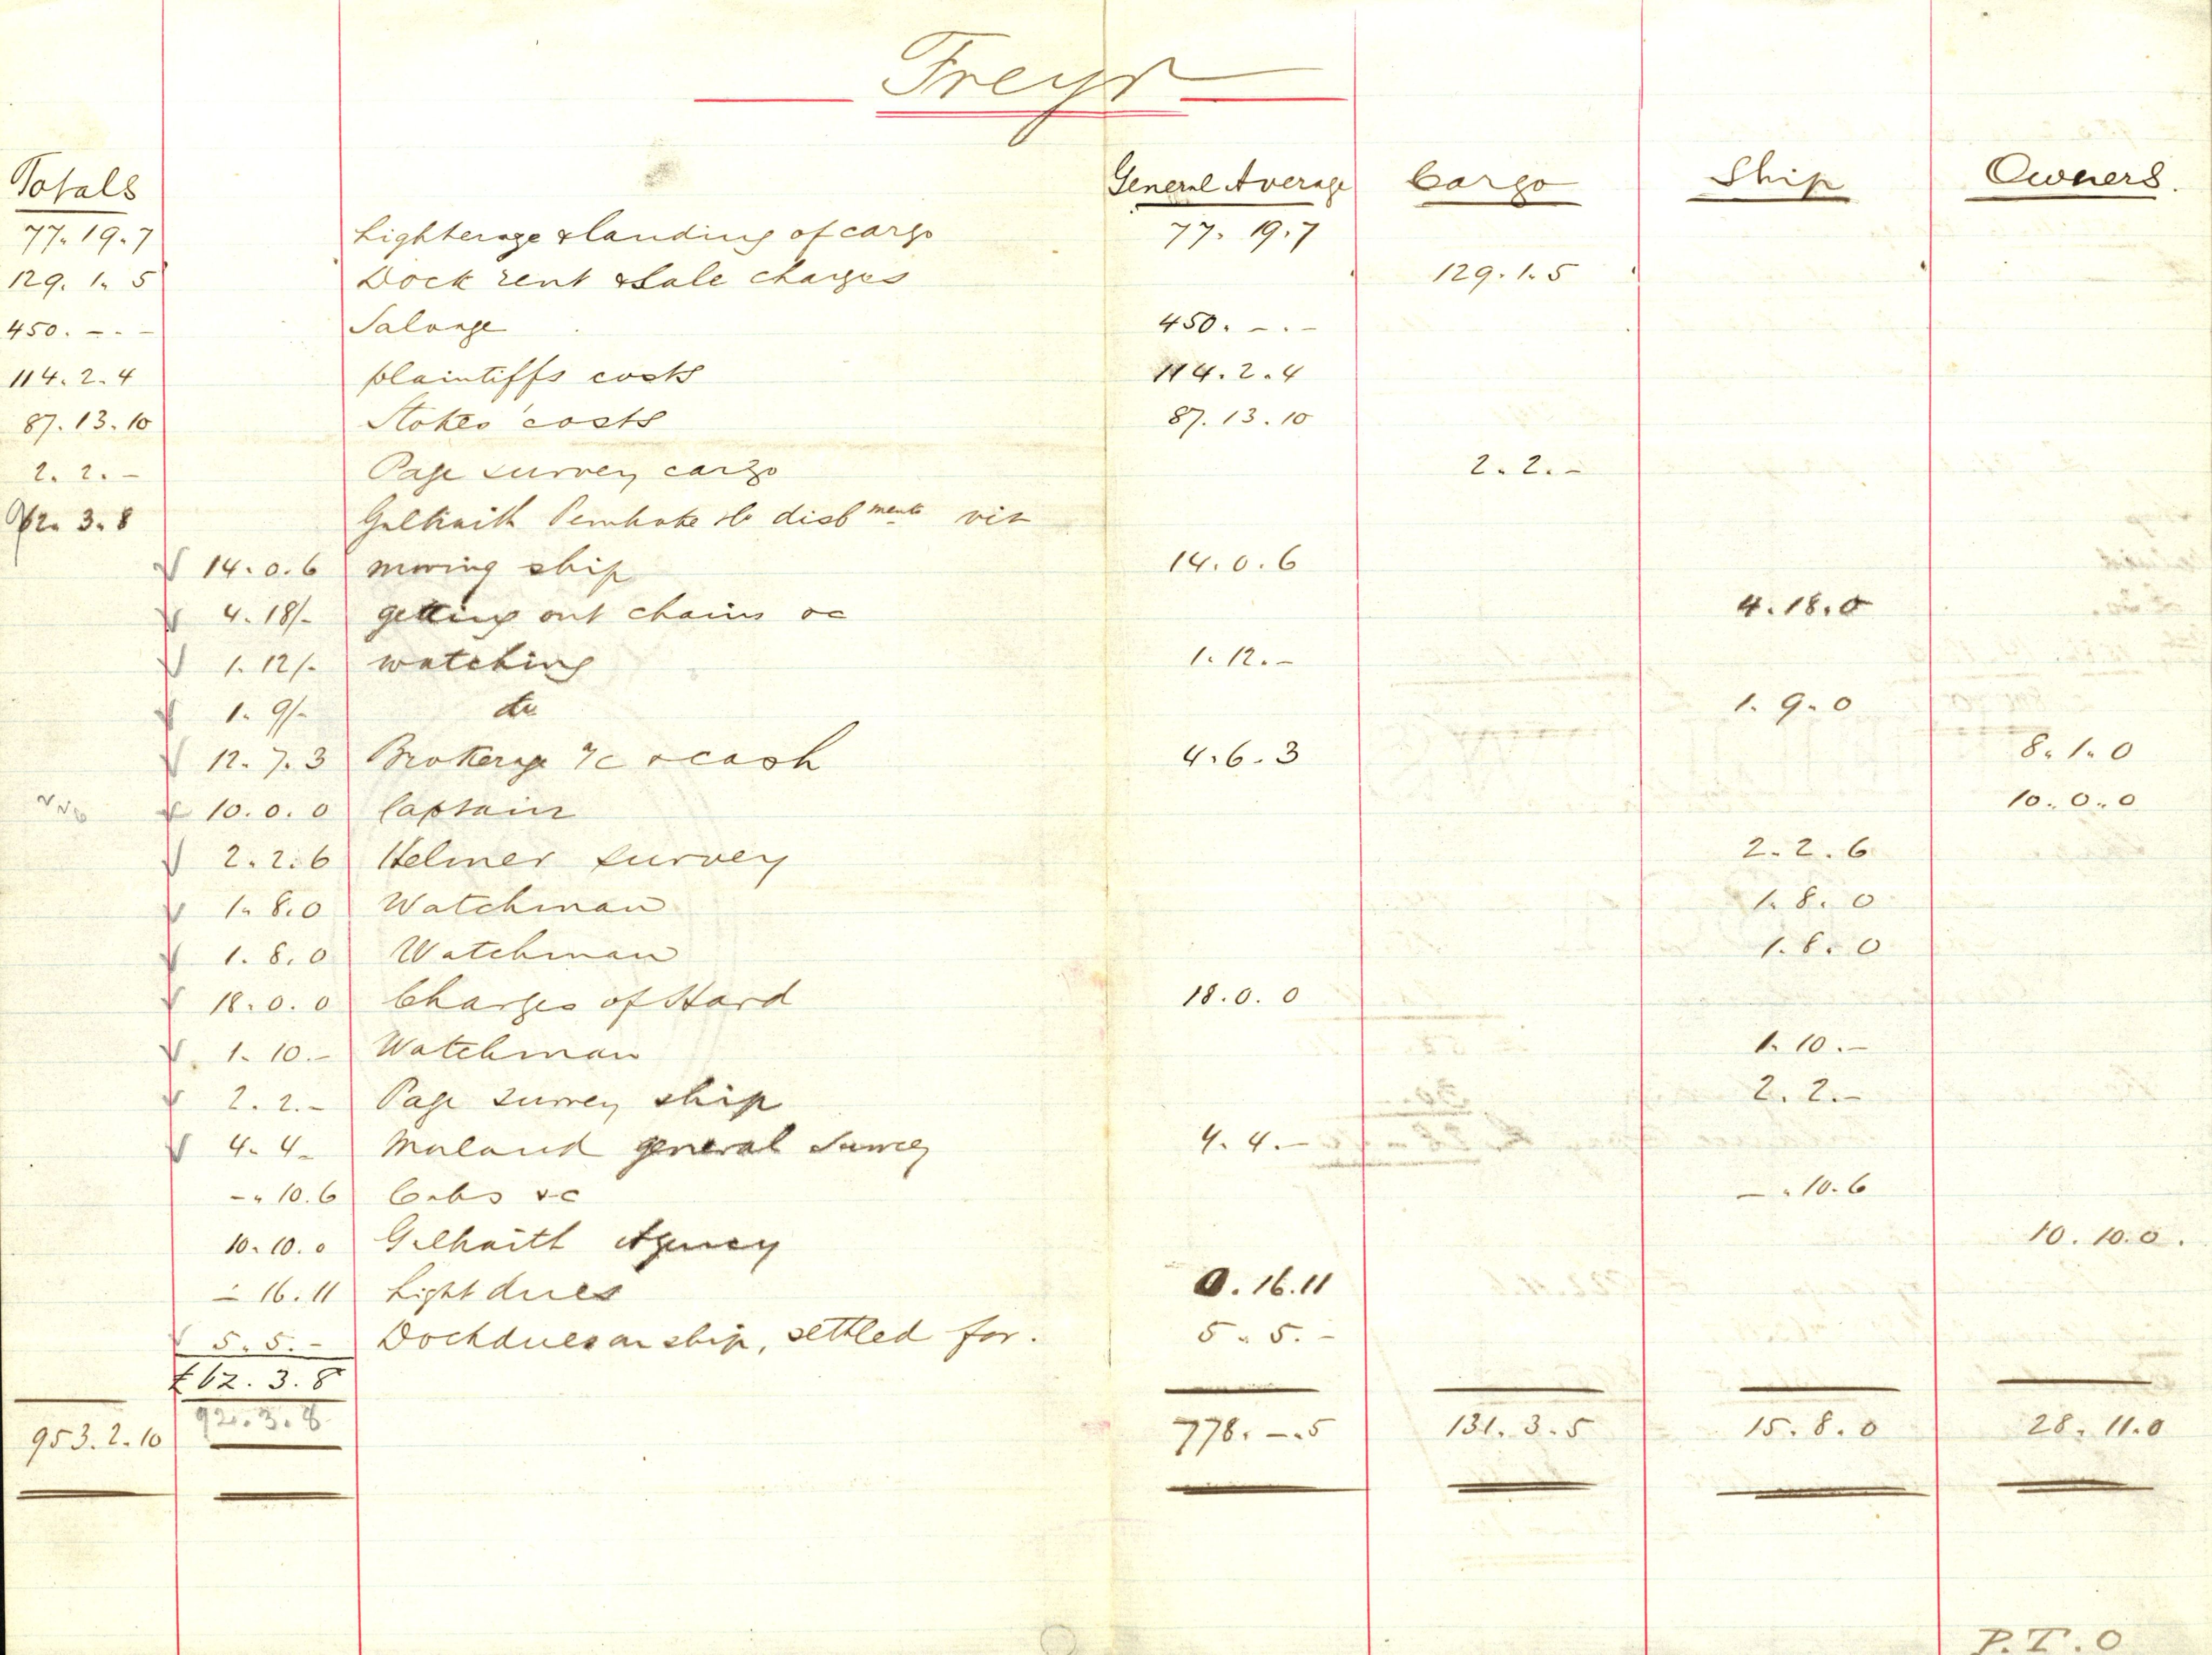 Freyr
Totals General Average Cargo Ship Owners.
77. 19. 7 Lighterage & landing of cargo 77. 19. 7
129. 1. 5 Dock rent & Sale charges 129. 1. 5
450. -. - Salvage 450. -. -
114. 2. 4 plaintiffs costs 114. 2. 4
87. 13. 10 Stokes' costs 87. 13. 10
2. 2. - Page survey cargo 2. 2. -
92. 3. 8 Pembroke disbments viz
14. 0. 6 moving ship 14. 0. 6
4. 18/- getting out chains &c 4. 18. 0
1. 12/- watching 1. 12. -
1. 9/- do 1. 9. 0
12. 7. 3 Brokerage &c & cash 4. 6. 3 8. 1. 0
10. 0. 0 Captain 10. 0. 0
2. 2. 6 Helmer survey 2. 2. 6
1. 8. 0 Watchman 1. 8. 0
1. 8. 0 Watchman 1. 8. 0
18. 0. 0 Charges of Hard 18. 0. 0
1. 10. - Watchman 1. 10. -
2. 2. - Page survey ship 2. 2. -
4. 4 - general Survey 4. 4. -
-. 10. 6 Cabs &c -. 10. 6
10. 10. 0 Agency 10. 10. 0.
- 16. 11 Light dues 0. 16. 11
5. 5. - Dockdues on ship, settled for. 5. 5. -
£62. 3. 8
92. 3. 8
953. 2. 10 778. -. 5 131. 3. 5 15. 8. 0 28. 11. 0
P.T.O